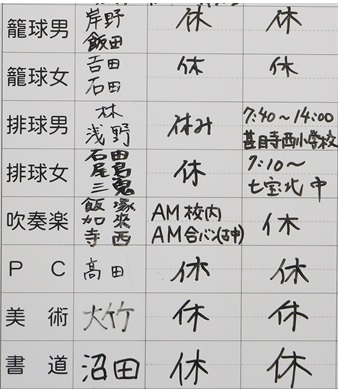 籠球男 岸野 休 休
飯田
籠球女 吉田 休 休
石田
排球男 林 休み 7:40～14:00
浅野 甚目寺西小学校
排球女 石田 休 7:10～
尾島 七宝北中
三兎
吹奏楽 飯塚 AM 校内 休
加来 AM 合バン(古中)
寺西
PC 高田 休 休
美術 大竹 休 休
書道 沼田 休 休